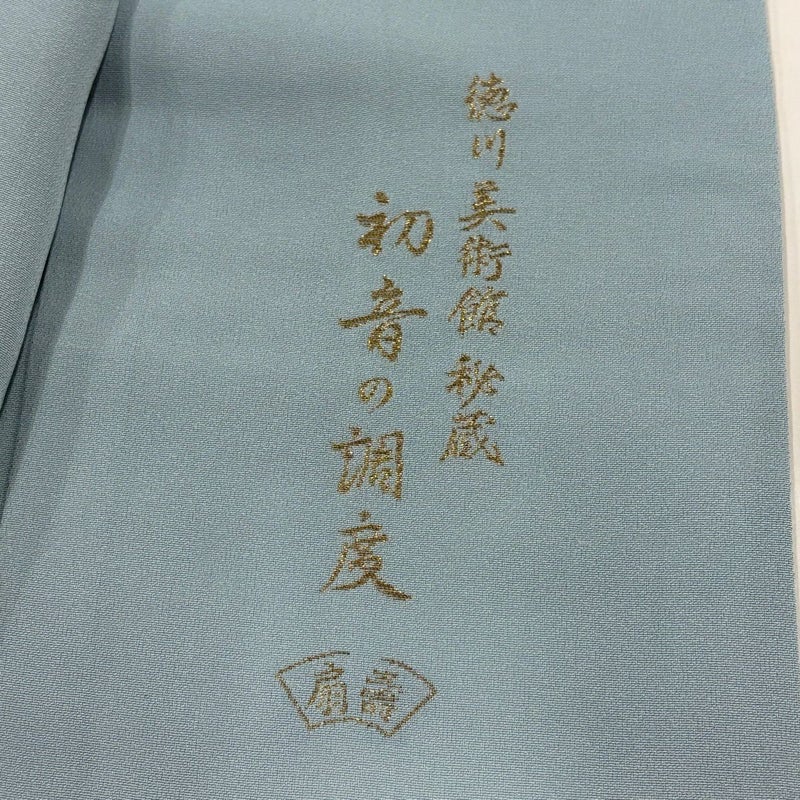 徳川美術館秘蔵
初音の調度
扇壽